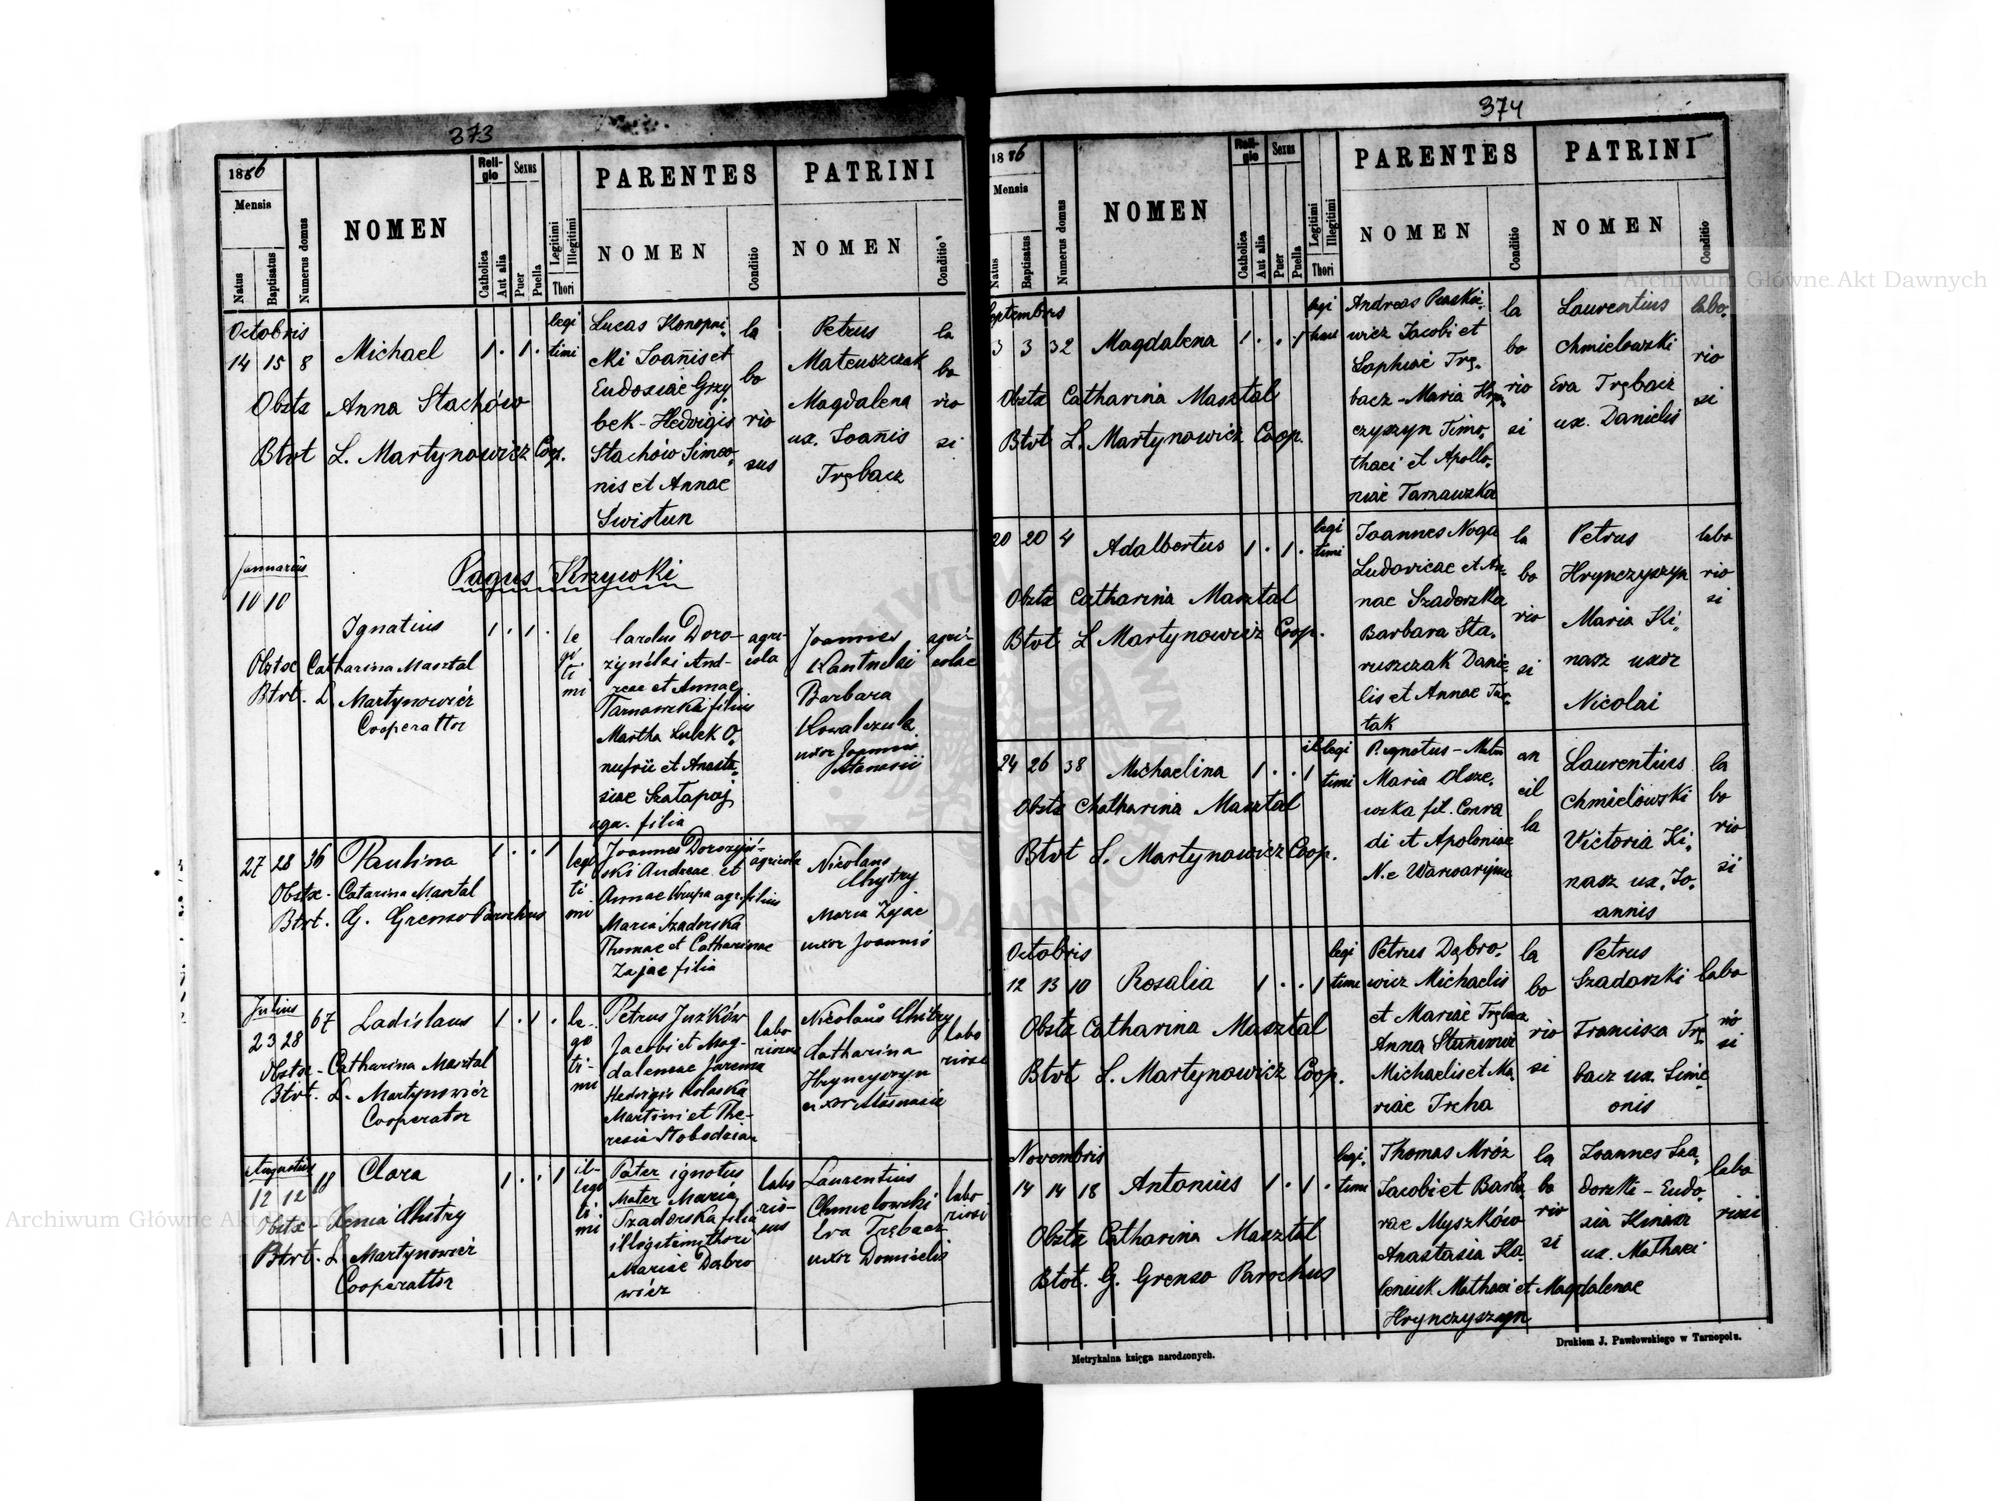 373
1886
Mensis
Natus
Baptisatus
Numerus domus
NOMEN
Religio
Catholica
Aut alia
Sexus
Puer
Puella
Legitimi
Illegitimi
Thori
PARENTES
NOMEN
Conditio
PATRINI
NOMEN
Conditio
Octobris
14 15 8
Michael
1 . 1 .
legi
timi
Obstx Anna Stachów
Btvt L. Martynowicz Coop.
Lucas Konopni-
cki Joañis et
Eudosiae Grzy
bek - Hedvigis
Stachów Simeo-
nis et Annae
Swistun
la
bo
rio
sus
Petrus
Mateuszczak
Magdalena
ux. Joañis
Trębacz
la
bo
rio
si
Pagus Krzywki
Januarius
10 10
Ignatius
1 . 1 .
le
gi
ti
mi
Obstx Catharina Masztal
Btvt. L. Martynowicz
Cooperator
Carolus Doro-
żyński And-
reae et Annae
Tarnawska filius
Martha Łulek O-
nufrii et Anasta-
siae
agr. filia
agri-
cola
Joannes
Barbara
Kowalczuk
uxor Joannis
agri-
colae
27 28 36
Paulina
1 . . 1
legi
ti
mi
Obstx - Catarina Masztal
Btvt. G. Grenso Parochus
Joannes Dorożyń-
ski Andreae et
Annae Krupa agr. filius
Maria Szadorska
Thomae et Catharinae
Zajac filia
agricola
Nicolaus
Chytry
Maria Zajac
uxor Joannis
Julius
23 28 67
Ladislaus
1 . 1 .
le-
gi
ti-
mi
Obstx - Catharina Masztal
Btvt. L. Martynowicz
Cooperator
Petrus Juzków
Jacobi et Mag-
dalenae Jarema
Hedvigis Kolaska
Martini et The-
resia Slobodzian
labo
riosus
Nicolaus Chitry
Catharina
Hryncyszyn
uxor
labo
riosi
Augustus
12 12 18
Clara
1 . . 1
il-
legi
ti-
mi
Obstx - Xenia Chitry
Btvt. L. Martynowicz
Cooperattor
Pater ignotus
Mater Maria
Szadorska filia
illegitimi thori
Mariae Dabro
wicz
labo
rio-
sus
Laurentius
Chmielowski
Eva Trębacz
uxor Danielis
labo
riosi
374
1886
Mensis
Natus
Baptisatus
Numerus domus
NOMEN
Religio
Catholica
Aut alia
Sexus
Puer
Puella
Legitimi
Illegitimi
Thori
PARENTES
NOMEN
Conditio
PATRINI
NOMEN
Conditio
Septembris
3 3 32
Magdalena
1 . . 1
legi
timi
Obstx Catharina Masztal
Btvt L. Martynowicz Coop.
Andreas
wicz Jacobi et
Sophiae Trę-
bacz - Maria Hryn-
czyszyn Timo-
thaei et Apollo-
niae Tarnawska
la
bo
rio
si
Laurentius
Chmielowski
Eva Trębacz
ux. Danielis
labo-
rio
si
20 20 4
Adalbertus
1 . 1 .
legi
timi
Obstx Catharina Masztal
Btvt L Martynowicz Coop.
Joannes Noga
Ludovicae et An-
nae Szadorska
Barbara Sta-
ruszczak Danie-
lis et Annae Tar-
tak
la
bo
rio
si
Petrus
Hrynczyszyn
Maria Ki-
nasz uxor
Nicolai
labo
rio
si
24 26 38
Michaelina
1 . . 1
illegi
timi
Obstx Chatharina Masztal
Btvt L. Martynowicz Coop.
P. ignotus - Mater
Maria Olsze-
wska fil. Conra
di et Apoloniae
an
cil
la
Laurentius
Chmielowski
Victoria Ki-
nasz ux. Jo-
annis
la
bo
rio
si
Octobris
12 13 10
Rosalia
1 . . 1
legi
timi
Obstx Catharina Masztal
Btvt L. Martynowicz Coop.
Petrus Dąbro-
wicz Michaelis
et Mariae Trębacz
Anna
Michaelis et Ma-
riae Treha
la
bo
rio
si
Petrus
Szadorski
Franciska Trę-
bacz ux. Sime-
onis
labo
rio
si
Novembris
14 14 18
Antonius
1 . 1 .
legi-
timi
Obstx Catharina Masztal
Btvt. G. Grenso Parochus
Thomas Mróz
Jacobi et Barba-
rae Myszków
Anastasia Ha
leniuk Mathaei et Magdalenae
Hrynczyszyn
la
bo
rio
si
Joannes Sza-
dorski - Eudo-
sia Kinasz
ux. Mathaei
labo
riosi
Metrykalna księga narodzonych.
Drukiem J. Pawłowskiego w Tarnopolu.
Archiwum Główne Akt Dawnych
Archiwum Główne Akt Dawnych